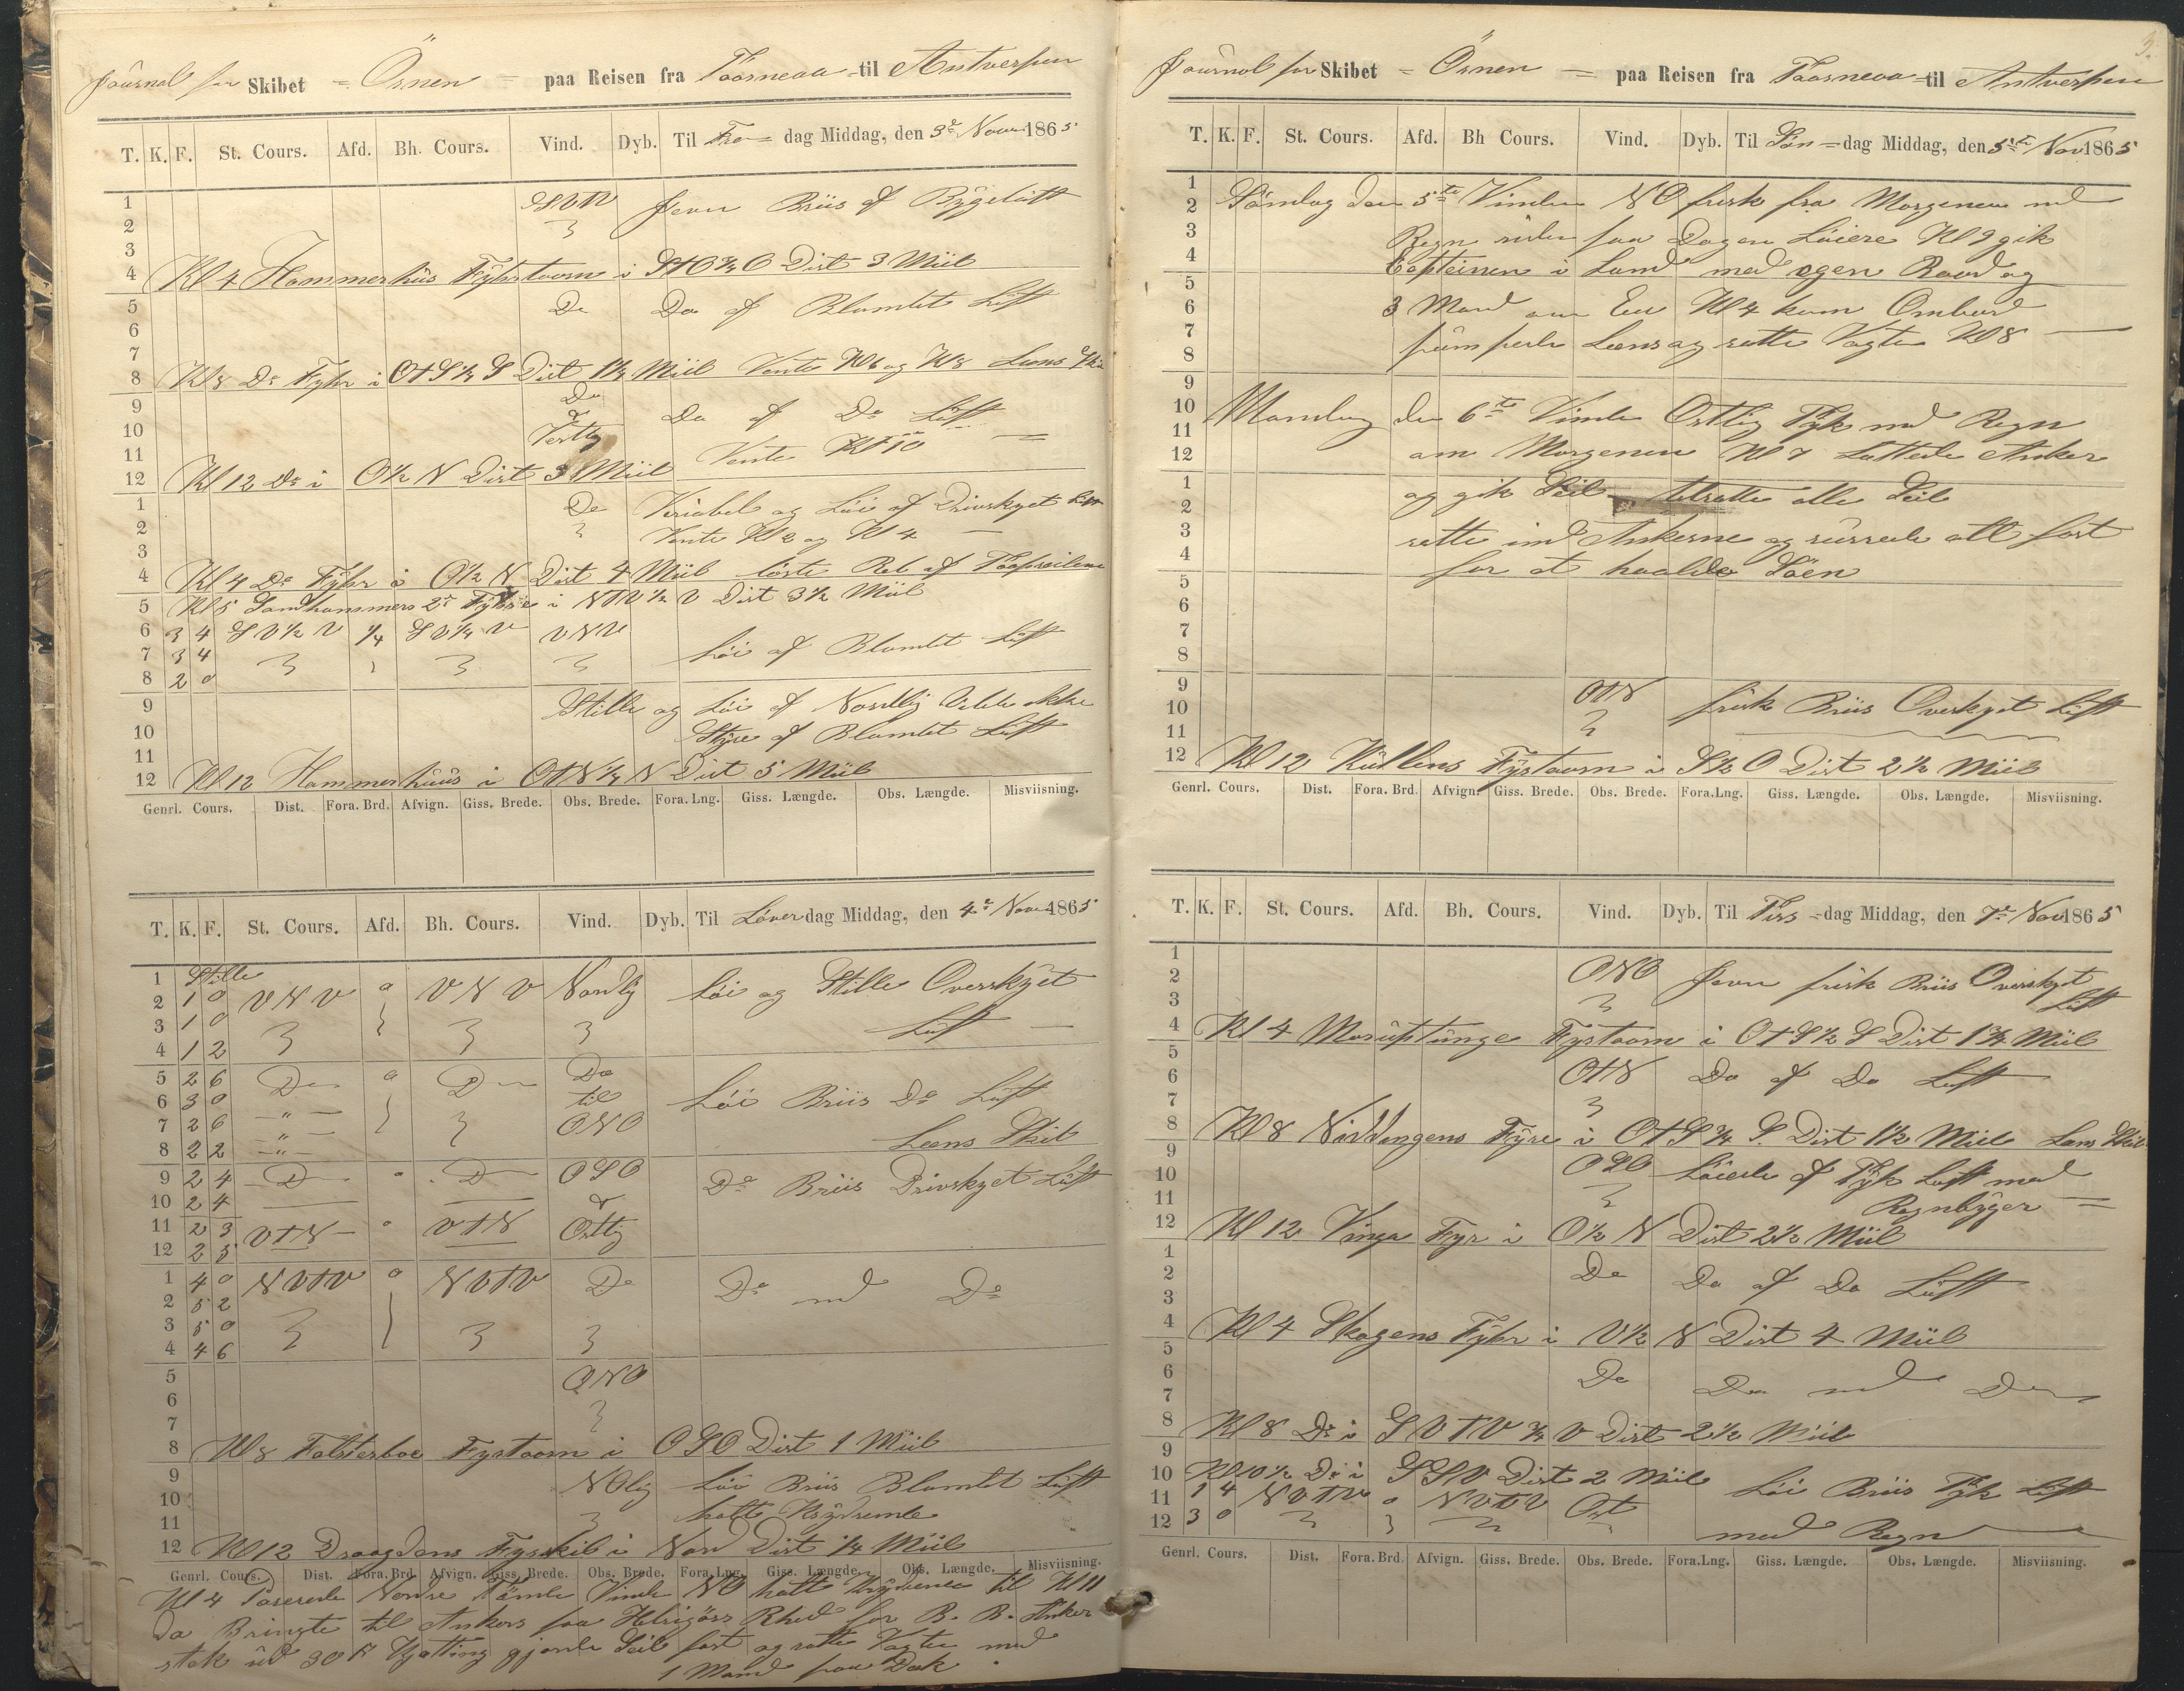 Journal for Skibet = Örnen = paa Reisen fra Taarneaa til Antverpen
T. K. F. St. Cours. Afd. Bh. Cours. Vind. Dyb. Til Fre= dag Middag, den 3e Novr 1865
1 SVtV Jevn Briis af Bygeluft
2
3
4 Kl 4 Hammerhüs Fyhrtaarn i StO¾O Dist 3 Miil
5 Do Do af Blamlet Luft
6
7
8 Kl 8 Do Fyhr i OtS½S Dist 1½ Miil Vente Kl 6 og Kl 8 Lens Skib
9 Do Do af Do Luft
10 Vestlig Vente Kl 10
11
12 Kl 12 Do i O½N Dist 3 Miil
1 Do Veriabel og Löi af Drivskyet Luft
2 Vente Kl 2 og Kl 4
3
4 Kl 4 Do Fyhr i O½N Dist 4 Miil löste Reb af Topseilene
5 Kl 5 Sandhammers 2de Fyhre i NtV½V Dist 3½ Miil
6 3 4 SV½V ¼ SV¼V VNV
7 3 4 Löi af Blamlet Luft
8 2 0
9 Stille og Löi af Nordlig Vilde ikke
10 Styre af Blamlet Luft
11
12 Kl 12 Hammerhuüs i OtN¼N Dist 5 Miil
Genrl. Cours. Dist. Fora. Brd. Afvign. Giss. Brede. Obs. Brede. Fora. Lng. Giss. Længde. Obs. Længde. Misviisning.
T. K. F. St. Cours. Afd. Bh. Cours. Vind. Dyb. Til Löver dag Middag, den 4e Novr 1865
1 Stille
2 1 0 VNV 0 VNV Nordlig Löi og Stille Overskyet
3 1 0 Luft
4 1 2
5 2 6 Do 0 Do Do
6 3 0 " til Löi Briis Do Luft
7 2 6 " ONO
8 2 2 " Lens Skib
9 2 4 D " D OSO Do Briis Drivskyet Luft
10 2 4
11 2 3 VtN 0 VtN Ostlig
12 2 5
1 4 0 NVtV 0 NVtV Do Do md Do
2 5 2
3 5 0
4 4 6
5 ONO
6
7
8 Kl 8 Falsterboe Fyrtaarn i OSO Dist 1 Miil
9 NOlig Löi Briis Blamlet Luft
10 holte Krydsende
11
12 Kl 12 Draagdens Fyrskib i Nord Dist ¼ Miil
Genrl. Cours. Dist. Fora. Brd. Afvign. Giss. Brede. Obs. Brede. Fora. Lng. Giss. Længde. Obs. Længde. Misviisning.
Kl 4 Paserede Nordre Tömle Vinde NO holte Krydsende til Kl 11
da Bringte til Ankers paa Helsigörs Rhed for B. B. Anker
stak üd 30 ft Kjætting gjorde Seil fast og satte Vagten med
1 Mand paa Dæk
3.
Journal for Skibet = Örnen = paa Reisen fra Taarneaa til Antverpen
T. K. F. St. Cours. Afd. Bh Cours. Vind. Dyb. Til Sön=dag Middag, den 5te Nov 1865
1
2 Söndag den 5te Vinden NO frisk fra Morgenen md
3 Regn siden paa Dagen Löiere Kl 9 gik
4 Capteinen i Land med egen Baad og
5
6 3 Mand om Em Kl 4 kom Ombord
7 pumpede Lens og satte Vagten Kl 8
8
9
10 Mandag den 6te Vinden Ostlig Tyk med Regn
11
12 om Morgenen Kl 7 Lættede Anker
1 og gik Seil tilsatte alle Seil
2
3 satte ind Ankerne og surrede alt fast
4 for at haalde Söen
5
6
7
8
9 OtN frisk Briis Overskyet Luft
10
11
12 Kl 12 Kullens Fyrtaarn i S½O Dist 2½ Miil
Genrl. Cours. Dist. Fora. Brd. Afvign. Giss. Brede. Obs. Brede. Fora. Lng. Giss. Længde. Obs. Længde. Misviisning.
T. K. F. St. Cours. Afd. Bh. Cours. Vind. Dyb. Til Tirs=dag Middag, den 7e Nov 1865
1
2 ONO Jevn frisk Briis Overskyet
3 Luft
4 Kl 4 Moruptünge Fyrtaarn i OtS½S Dist 1¾ Miil
5
6 OtN Do af Do Luft
7
8 Kl 8 Niddingens Fyre i OtS¾S Dist 1½ Miil Lens Skib
9
10 OSO Löiede af Tyk Luft med
11 Regnbyger
12 Kl 12 Vinga Fyr i O½N Dist 2½ Miil
1
2 Do Do af Do Luft
3
4 Kl 4 Skagens Fyhr i V½N Dist 4 Miil
5
6 Do Do md Do
7
8 Kl 8 Do i SVtV¾V Dist 2½ Miil
9
10 Kl 10½ Do i SSV Dist 2 Miil
11 1 4 NVtV 0 NVtV Ost Löi Briis Tyk Luft
12 3 0 med Regn
Genrl. Cours. Dist. Fora. Brd. Afvign. Giss. Brede. Obs. Brede. Fora. Lng. Giss. Længde. Obs. Længde. Misviisning.